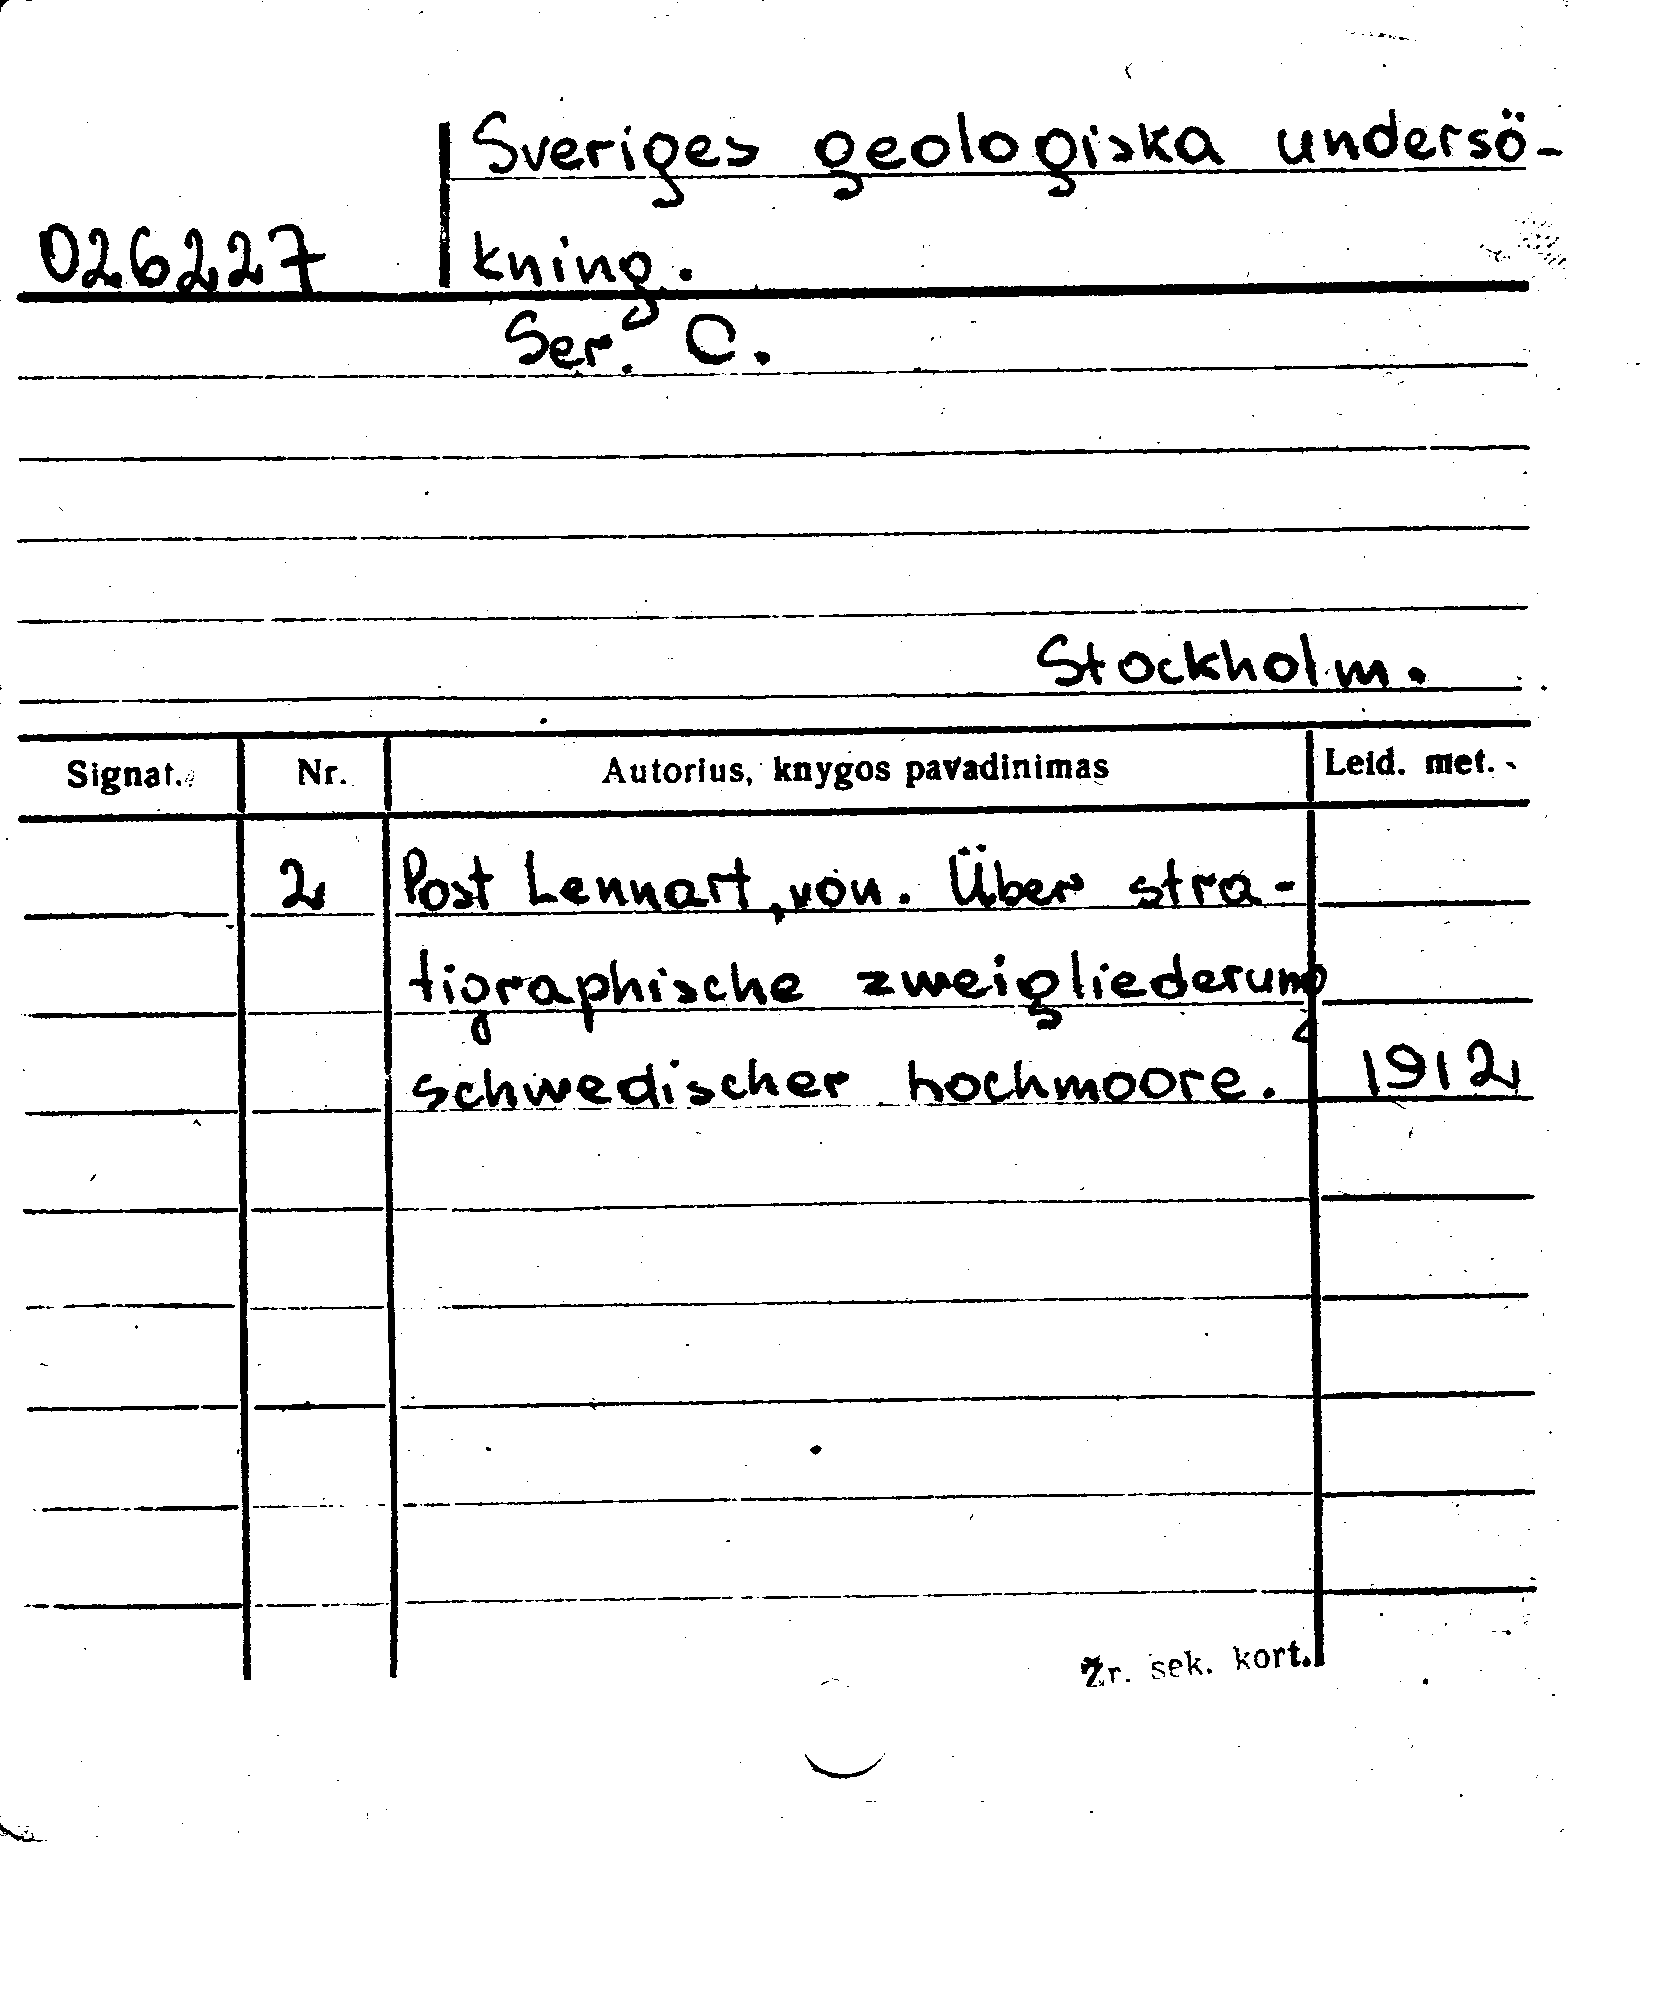 Sveriges geologiska undersö-
026227 kning.
Ser. C.
Stockholm.
Signat. Nr. Autorius, knygos pavadinimas Leid. met.
2 Post Lennart, von. Über stra-
tigraphische zweigliederung
schwedischer hochmoore. 1912
Žr. sek. kort.